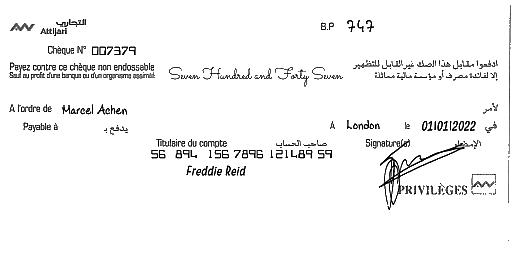 التجاري
Attijari
B.P 747
Chèque N° 007379
Payez contre ce chèque non endossable
Sauf au profit d'une banque ou d'un organisme assimilé
Seven Hundred and Forty Seven
ادفعوا مقابل هذا الصك غير القابل للتظهير
إلا لفائدة مصرف أو مؤسسة مالية مماثلة
A l'ordre de Marcel Achen لأمر
Payable à يدفع بـ A London le 01/01/2022 في
Titulaire du compte صاحب الحساب Signature(s) الإمضاء
56 894 156 7896 121489 59
Freddie Reid
PRIVILÈGES